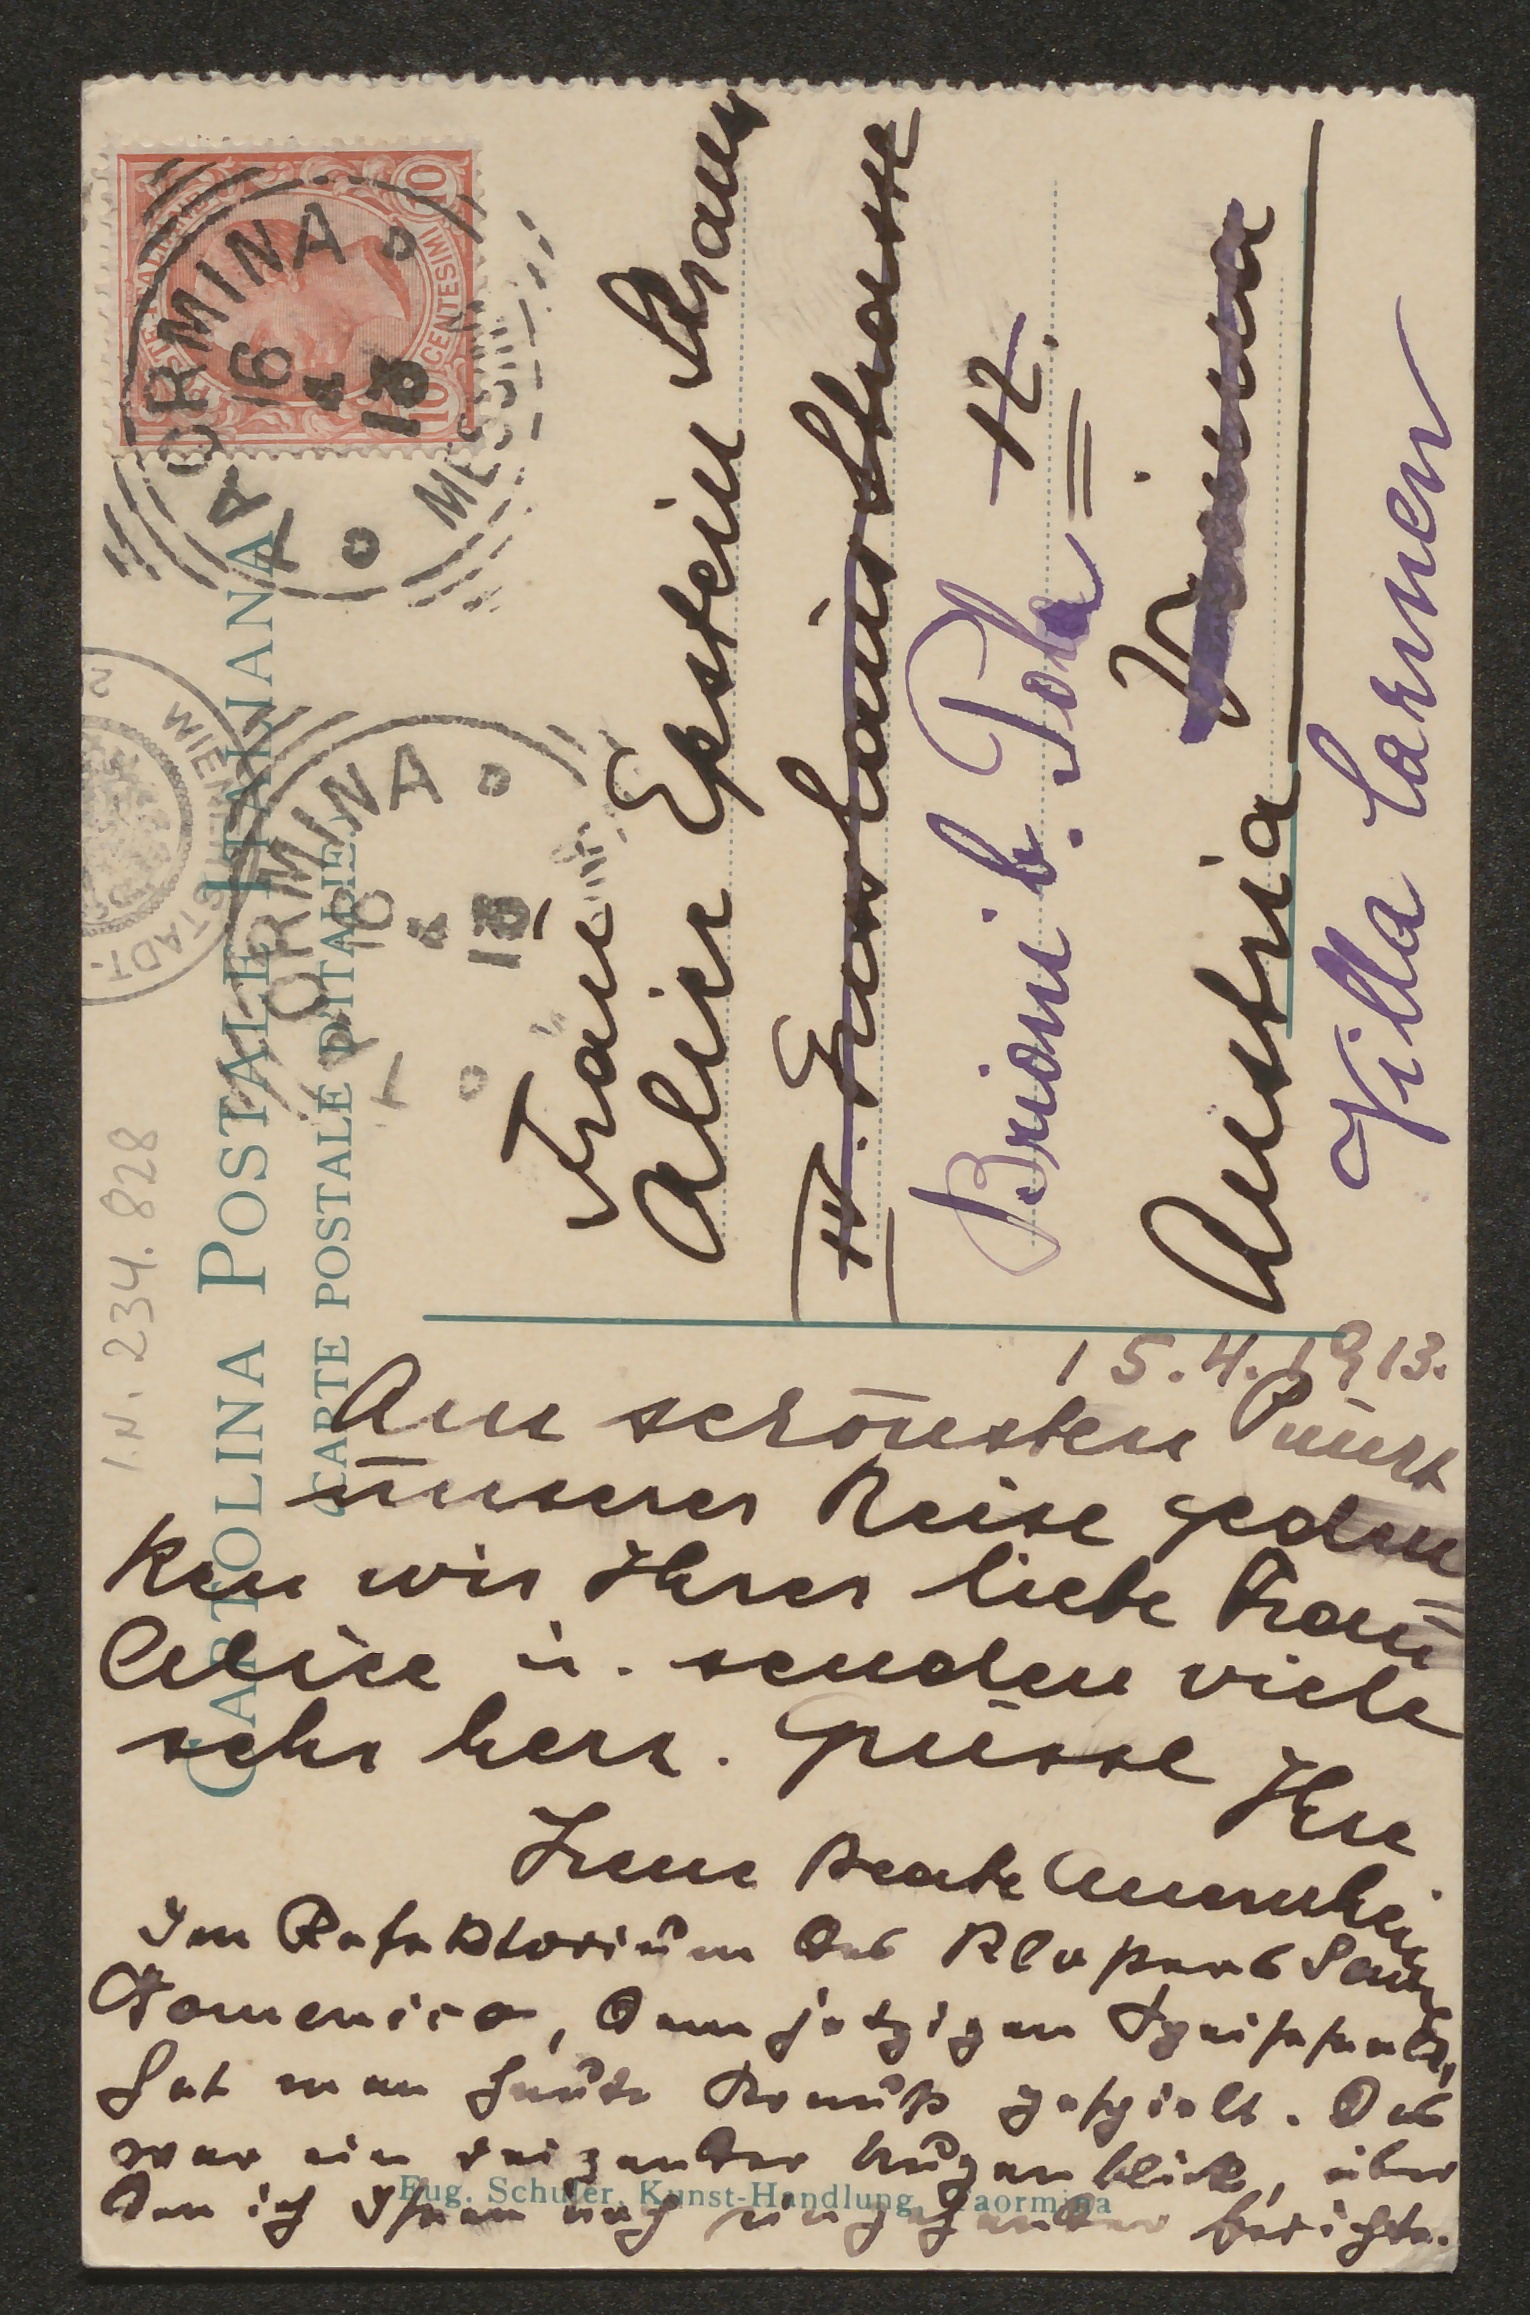 I.N. 234.828
CARTOLINA POSTALE ITALIANA
CARTE POSTALE D'ITALIE
POSTE ITALIANE
10 CENTESIMI 10
TAORMINA
16 4 13
TAORMINA
16 4 13
WIEN
Frau
Alice Epstein Strauss
IV.
12.
Brioni b. Pola
Austria
Villa Carmen
15.4.1913.
Am schönsten Punkt
unserer Reise geden
ken wir Ihrer liebe Frau
Alice u. senden viele
sehr herz. Grüsse Ihre
Irene
Im Refektorium des Klosters San
Domenico, dem jetzigen Speisesaal,
hat man heute gespielt. Das
war ein reizender Augenblick, über
den ich Ihnen noch eingehender berichte.
Eug. Schuler, Kunst-Handlung, Taormina